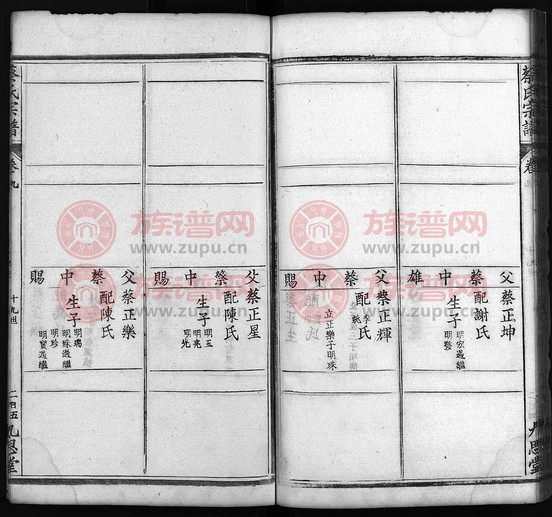 蔡氏宗譜
父蔡正坤
蔡 配謝氏
中 生子 明宏過繼 明發
雄
父蔡正輝
蔡 配李氏
中 立正樂子明珠
賜
父蔡正星
蔡 配陳氏
中 生子 明玉 明亮 明光
賜
父蔡正樂
蔡 配陳氏
中 生子 明珠過繼 明珍 明寶過繼
賜
蔡氏宗譜
卷九
十九世
九思堂
族谱网
www.zupu.cn
族谱网
www.zupu.cn